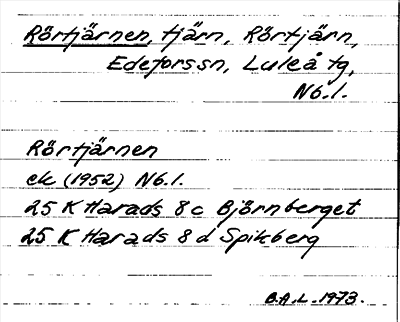 Rörtjärnen, tjärn, Rörtjärn,
Edeforssn, Luleå tg,
Nb.l.
Rörtjärnen
ek (1952) Nb.l.
25 K Harads 8 c Björnberget
25 K Harads 8 d Spikberg
B.A.L. 1973.